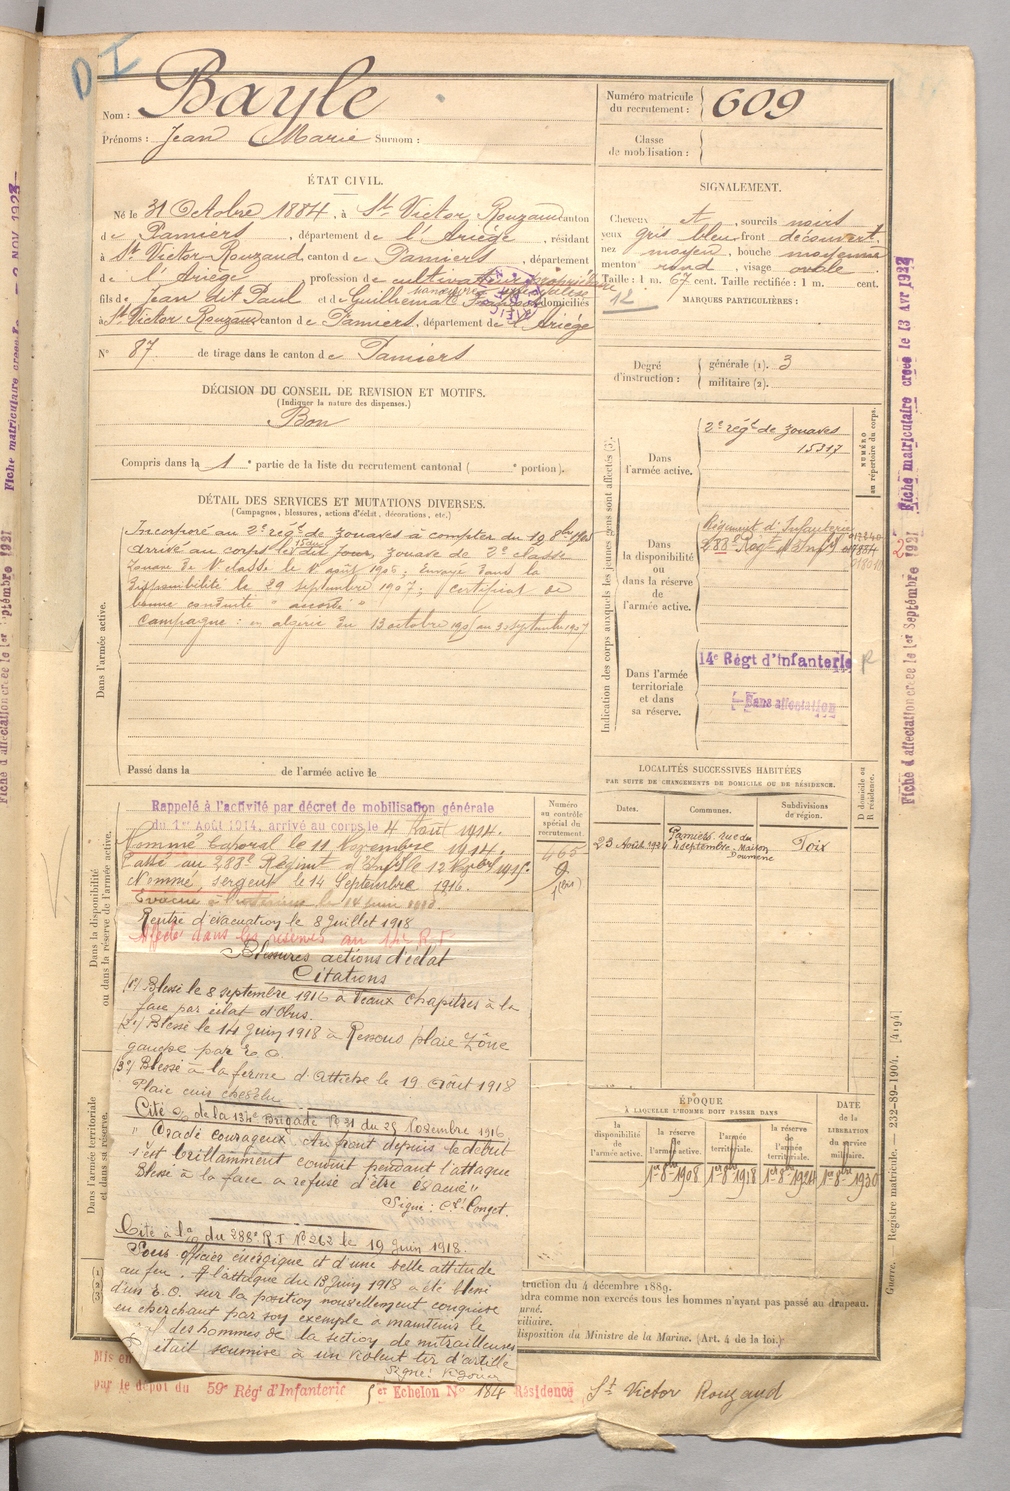 D I
Nom : Bayle
Prénoms : Jean Marie Surnom :
Numéro matricule du recrutement : 609
Classe de mobilisation :
ÉTAT CIVIL.
Né le 31 Octobre 1884, à St Victor Rouzaud canton
de Pamiers, département de l'Ariège, résidant
à St Victor Rouzaud, canton de Pamiers, département
de l'Ariège profession de cultivateur propriétaire
fils de Jean dit Paul et de Guilhemat domiciliés
à St Victor Rouzaud canton de Pamiers, département de l'Ariège
N° 87 de tirage dans le canton de Pamiers
SIGNALEMENT.
Cheveux et, sourcils noirs
yeux gris bleu, front découvert,
nez moyen, bouche moyenne
menton rond, visage ovale
Taille : 1 m. 67 cent. Taille rectifiée : 1 m. cent.
12
MARQUES PARTICULIÈRES :
DÉCISION DU CONSEIL DE REVISION ET MOTIFS.
(Indiquer la nature des dispenses.)
Bon
Compris dans la 1e partie de la liste du recrutement cantonal ( e portion).
Degré d'instruction : générale (1). 3
militaire (2).
DÉTAIL DES SERVICES ET MUTATIONS DIVERSES.
(Campagnes, blessures, actions d'éclat, décorations, etc.)
Dans l'armée active.
Incorporé au 2e régt de zouaves à compter du 12 8bre 1905
arrivé au corps le dit jour, zouave de 2e classe
Zouave de 1e classe le 1er août 1906; Envoyé dans la
disponibilité le 29 septembre 1907; certificat de
bonne conduite "accordé"
Campagne : en algérie du 13 octobre 1905 au 30 septembre 1907
Passé dans la de l'armée active le
Indication des corps auxquels les jeunes gens sont affectés (3).
NUMÉRO au répertoire du corps.
Dans l'armée active.
2e régt de zouaves
15317
Dans la disponibilité ou dans la réserve de l'armée active.
Régiment d'Infanterie
288e Régt d'Inf.
Dans l'armée territoriale et dans sa réserve.
14e Régt d'Infanterie R
Sans affectation
LOCALITÉS SUCCESSIVES HABITÉES
PAR SUITE DE CHANGEMENTS DE DOMICILE OU DE RÉSIDENCE.
Dates. Communes. Subdivisions de région. D domicile ou R résidence.
23 Août 1924 Pamiers rue du 4 septembre Maison Doumenc Foix
Dans la disponibilité ou dans la réserve de l'armée active.
Numéro au contrôle spécial du recrutement.
465
Rappelé à l'activité par décret de mobilisation générale
du 1er Août 1914, arrivé au corps le 4 Août 1914.
Nommé Caporal le 11 Novembre 1914.
Passé au 288e Régiment d'Infie le 12 1915.
Nommé sergent le 14 Septembre 1916.
Evacué le 14 juin 1918.
Rentré d'évacuation le 8 Juillet 1918
Affecté dans les réserves au 14e R.I.
Blessures actions d'éclat
Citations
(1°) Blessé le 8 septembre 1916 à Vaux Chapitre à la
face par éclat d'Obus.
(2°) Blessé le 14 Juin 1918 à Ressons plaie
gauche par E.O.
(3°) Blessé à la ferme d'Attiche le 19 Août 1918
Plaie cuir chevelu
Cité o/o de la 134e Brigade N° 31 du 25 Novembre 1916
"Gradé courageux. Au front depuis le début
s'est brillamment conduit pendant l'attaque
Blessé à la face a refusé d'être évacué"
Signé :
Cité à l'o/o du 288e R.I. N° 262 le 19 Juin 1918.
Sous officier énergique et d'une belle attitude
au feu. A l'attaque du 13 Juin 1918 a été blessé
d'un E.O. sur la position nouvellement conquise
en cherchant par son exemple à maintenir le
des hommes de la section de mitrailleuses
était soumise à un violent tir d'artille
Signé :
Dans l'armée territoriale et dans sa réserve.
ÉPOQUE
À LAQUELLE L'HOMME DOIT PASSER DANS
la disponibilité de l'armée active. la réserve de l'armée active. l'armée territoriale. la réserve de l'armée territoriale.
DATE de la LIBÉRATION du service militaire.
1er 8bre 1908 1er 8bre 1918 1er 8bre 1924 1er 8bre 1930
truction du 4 décembre 1889.
dra comme non exercés tous les hommes n'ayant pas passé au drapeau.
urné.
ciliaire.
disposition du Ministre de la Marine. (Art. 4 de la loi.)
Mis en
par le dépôt du 59e Régt d'Infanterie 1er Echelon N° 184 Résidence St Victor Rouzaud
Guerre. — Registre matricule. — 232-89-1904. [4194]
Fiche d'affectation créée le 1er Septembre 1921
Fiche matriculaire créée le 13 Avr 1922
Fiche matriculaire créée le 2 NOV 1923
Fiche d'affectation créée le 1er Septembre 1921